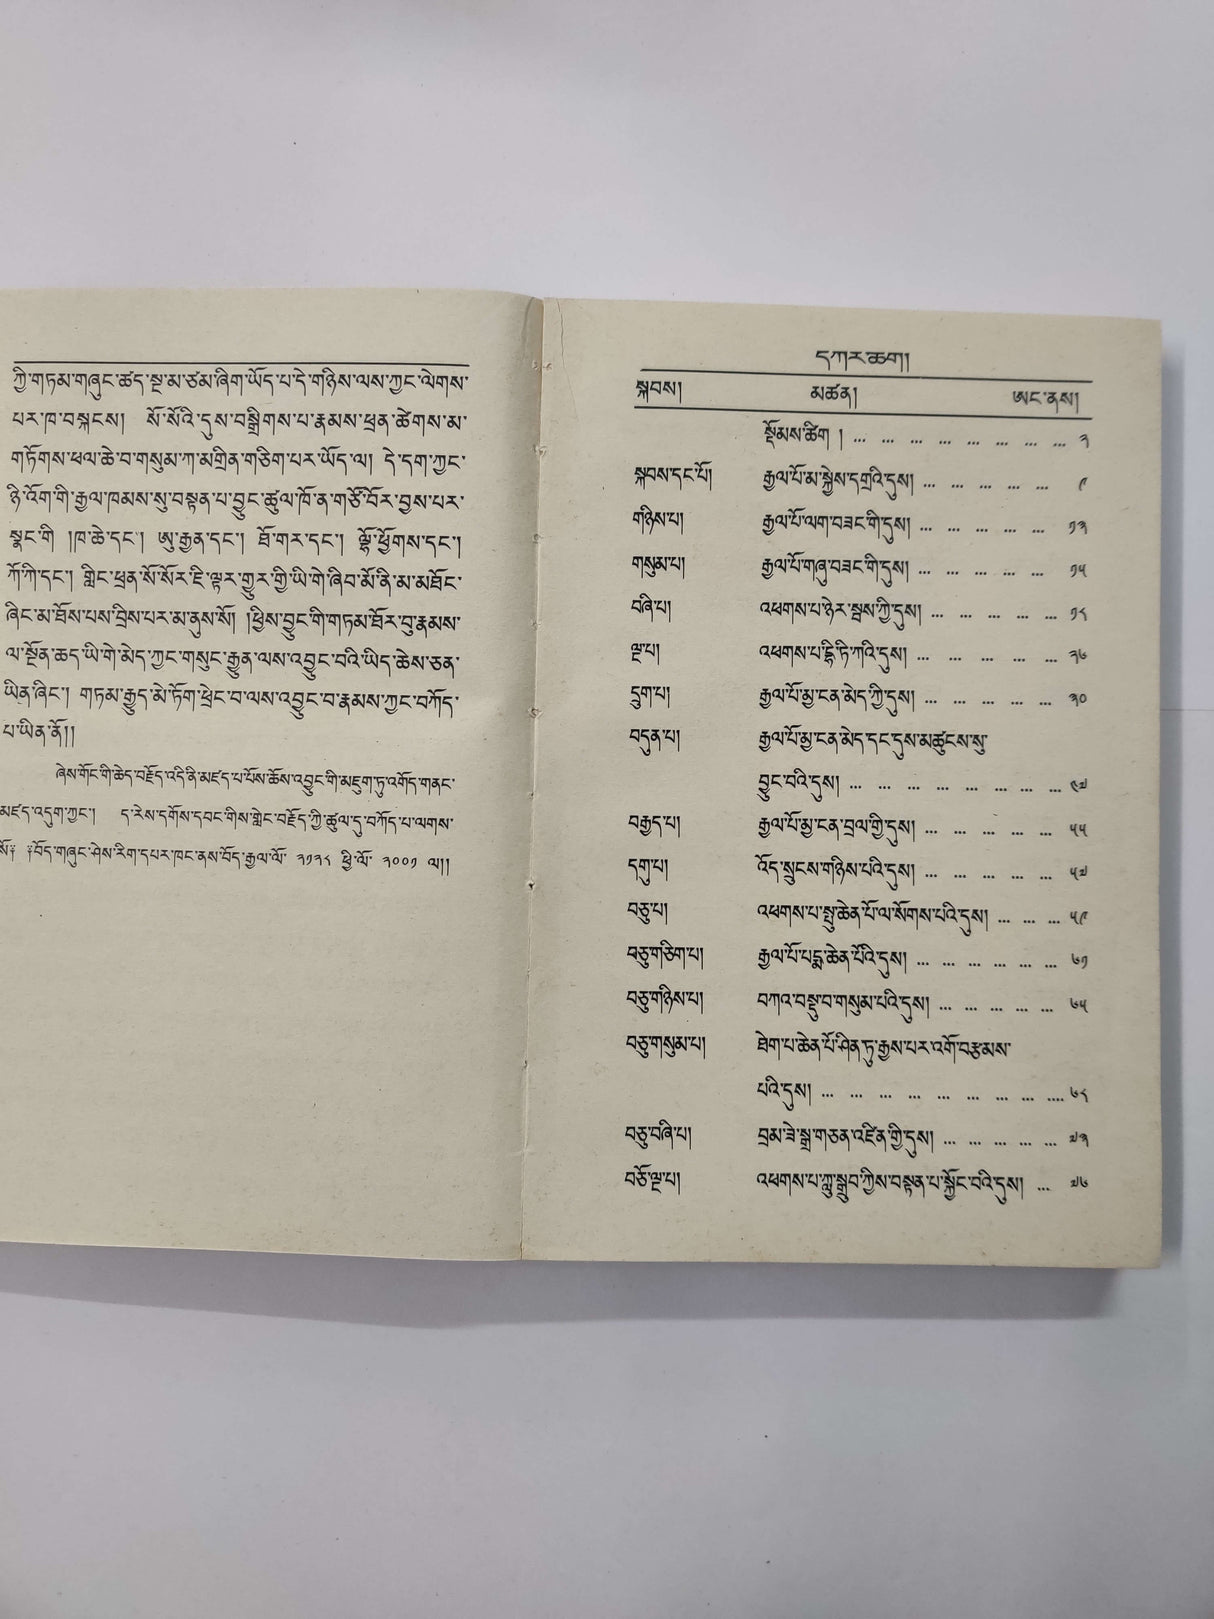 ཀྱི་གཏམ་གཞུང་ཚད་སྔ་མ་ཙམ་ཞིག་ཡོད་པ་དེ་གཉིས་ལས་ཀྱང་ལེགས་
པར་ཁ་བསྐངས། སོ་སོའི་དུས་བསྒྲིགས་པ་རྣམས་ཕྲན་ཚེགས་མ་
གཏོགས་ཕལ་ཆེ་བ་གསུམ་ཀ་མགྲིན་གཅིག་པར་ཡོད་ལ། དེ་དག་ཀྱང་
ཉི་འོག་གི་རྒྱལ་ཁམས་སུ་བསྟན་པ་བྱུང་ཚུལ་ཁོ་ན་གཙོ་བོར་བྱས་པར་
སྣང་གི །ཁ་ཆེ་དང་། ཨུ་རྒྱན་དང་། ཐོ་གར་དང་། ལྷོ་ཕྱོགས་དང་།
ཀོ་ཀི་དང་། གླིང་ཕྲན་སོ་སོར་ཇི་ལྟར་གྱུར་གྱི་ཡི་གེ་ཞིབ་མོ་ནི་མ་མཐོང་
ཞིང་མ་ཐོས་པས་བྲིས་པར་མ་ནུས་སོ། །ཕྱིས་བྱུང་གི་གཏམ་ཐོར་བུ་རྣམས་
ལ་སྔོན་ཆད་ཡི་གེ་མེད་ཀྱང་གསུང་རྒྱུན་ལས་འབྱུང་བའི་ཡིད་ཆེས་ཅན་
ཡིན་ཞིང་། གཏམ་རྒྱུད་མེ་ཏོག་ཕྲེང་བ་ལས་འབྱུང་བ་རྣམས་ཀྱང་བཀོད་
པ་ཡིན་ནོ།།
ཞེས་གོང་གི་ཆེད་བརྗོད་འདི་ནི་མཛད་པ་པོས་ཆོས་འབྱུང་གི་མཇུག་ཏུ་འགོད་གནང་
མཛད་འདུག་ཀྱང་། ད་རེས་དགོས་དབང་གིས་གླེང་བརྗོད་ཀྱི་ཚུལ་དུ་བཀོད་པ་ལགས་
སོ༔ ༔བོད་གཞུང་ཤེས་རིག་དཔར་ཁང་ནས་བོད་རྒྱལ་ལོ་ ༢༡༢༨ ཕྱི་ལོ་ ༢༠༠༡ ལ།།
དཀར་ཆག།
སྐབས། མཚན། ཨང་ནས།
སྡོམས་ཚིག ། ... ... ... ... ... ... ... ... ༢
སྐབས་དང་པོ། རྒྱལ་པོ་མ་སྐྱེས་དགྲའི་དུས། ... ... ... ... ... ༩
གཉིས་པ། རྒྱལ་པོ་ལག་བཟང་གི་དུས། ... ... ... ... ... ༡༣
གསུམ་པ། རྒྱལ་པོ་གཞུ་བཟང་གི་དུས། ... ... ... ... ... ༡༥
བཞི་པ། འཕགས་པ་ཉེར་སྦས་ཀྱི་དུས། ... ... ... ... ... ༡༨
ལྔ་པ། འཕགས་པ་དྷི་ཏི་ཀའི་དུས། ... ... ... ... ... ༢༦
དྲུག་པ། རྒྱལ་པོ་མྱ་ངན་མེད་ཀྱི་དུས། ... ... ... ... ... ༣༠
བདུན་པ། རྒྱལ་པོ་མྱ་ངན་མེད་དང་དུས་མཚུངས་སུ་
བྱུང་བའི་དུས། ... ... ... ... ... ... ... ... ༤༧
བརྒྱད་པ། རྒྱལ་པོ་མྱ་ངན་བྲལ་གྱི་དུས། ... ... ... ... ... ༥༥
དགུ་པ། འོད་སྲུངས་གཉིས་པའི་དུས། ... ... ... ... ... ༥༧
བཅུ་པ། འཕགས་པ་སྤྲུ་ཆེན་པོ་ལ་སོགས་པའི་དུས། ... ... ... ༥༩
བཅུ་གཅིག་པ། རྒྱལ་པོ་པདྨ་ཆེན་པོའི་དུས། ... ... ... ... ... ... ༦༡
བཅུ་གཉིས་པ། བཀའ་བསྡུ་བ་གསུམ་པའི་དུས། ... ... ... ... ... ༦༥
བཅུ་གསུམ་པ། ཐེག་པ་ཆེན་པོ་ཤིན་ཏུ་རྒྱས་པར་འགོ་བརྩམས་
པའི་དུས། ... ... ... ... ... ... ... ... .... ༦༨
བཅུ་བཞི་པ། བྲམ་ཟེ་སྒྲ་གཅན་འཛིན་གྱི་དུས། ... ... ... ... ... ༧༣
བཅོ་ལྔ་པ། འཕགས་པ་ཀླུ་སྒྲུབ་ཀྱིས་བསྟན་པ་སྐྱོང་བའི་དུས། ... ༧༦